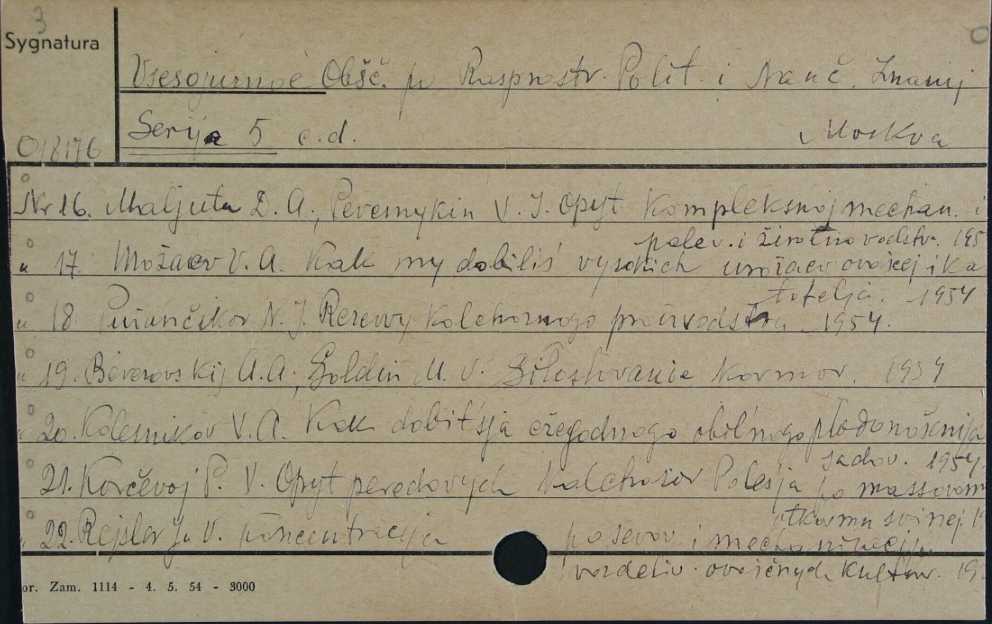 3
Sygnatura
Vsesojuznoe Obšč. po Rasprostr. Polit. i Nauč. Znanij
Serija 5 c.d. Moskva
018176
Nr 16. Maljuta D. A., Perersykin V. I. Opyt kompleksnoj mechan. i
polev. i životnovodstv. 195
" 17. Možaev V. A. Kak my dobiliś vysokich urožaev ovoščej i ka
tofelja. 1954
" 18. N. I. Rezervy kolchoznogo proizvodstva 1954.
" 19. A. A., Goldin M. V. Silosovanie kormov. 1954
" 20. Kolesnikov V. A. Kak dobit'sja ežegodnogo obil'nogo plodonošenija
sadov. 1954.
21. Korčevoj P. V. Opyt peredovych kolchozov Polesja po massovom
otkormu svinej
" 22. Rejsler Ja V. Koncentracija posevov i mechanizacija
vozdeliv. ovoščnych kul'tur. 19
or. Zam. 1114 - 4. 5. 54 - 3000